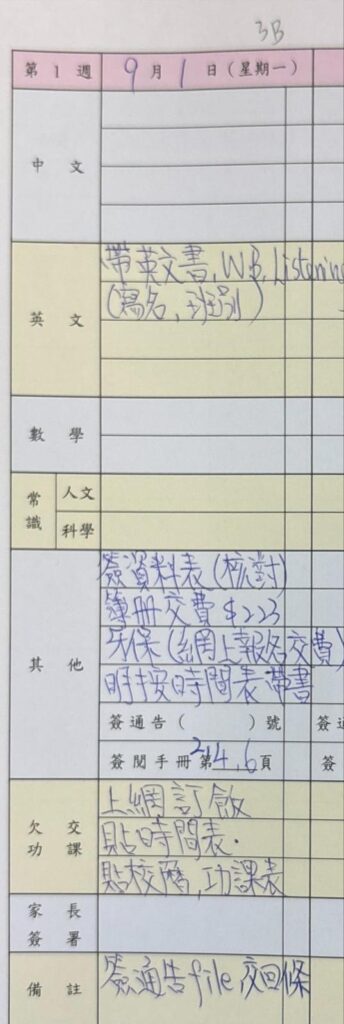 3B
第 1 週 9 月 1 日 (星期一)
中 文
英 文
帶英文書, W.B, Listening
(寫名, 班別)
數 學
常識 人文
科學
其 他
簽資料表 (核對)
簿冊交費 $223
牙保 (網上報名交費)
明按時間表帶書
簽通告 ( ) 號
簽閱手冊第 2,4,6 頁
欠 交
功 課
上網訂飯
貼時間表.
貼校曆, 功課表
家 長
簽 署
備 註
簽通告file, 交回條